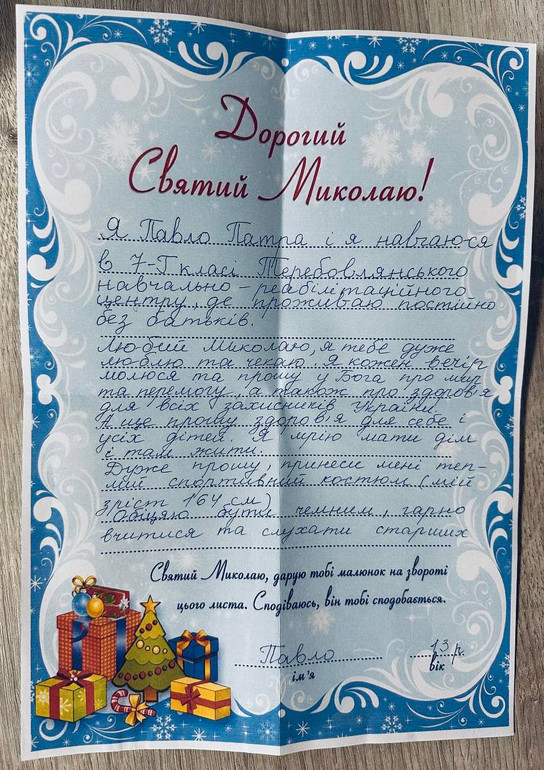 Дорогий
Святий Миколаю!
Я Павло Патра і я навчаюся
в 7-Г класі Теребовлянського
навчально-реабілітаційного
центру, де проживаю постійно
без батьків.
Любий Миколаю, я тебе дуже
люблю та чекаю. Я кожен вечір
молюся та прошу у Бога про мир
та перемогу, а також про здоров'я
для всіх захисників України.
А ще прошу здоров'я для себе і
усіх дітей. Я мрію мати дім
і там жити.
Дуже прошу, принеси мені теп-
лий спортивний костюм (мій
зріст 164 см)
Обіцяю бути чемним, гарно
вчитися та слухати старших
Святий Миколаю, дарую тобі малюнок на звороті
цього листа. Сподіваюсь, він тобі сподобається.
Павло 13 р.
ім'я вік